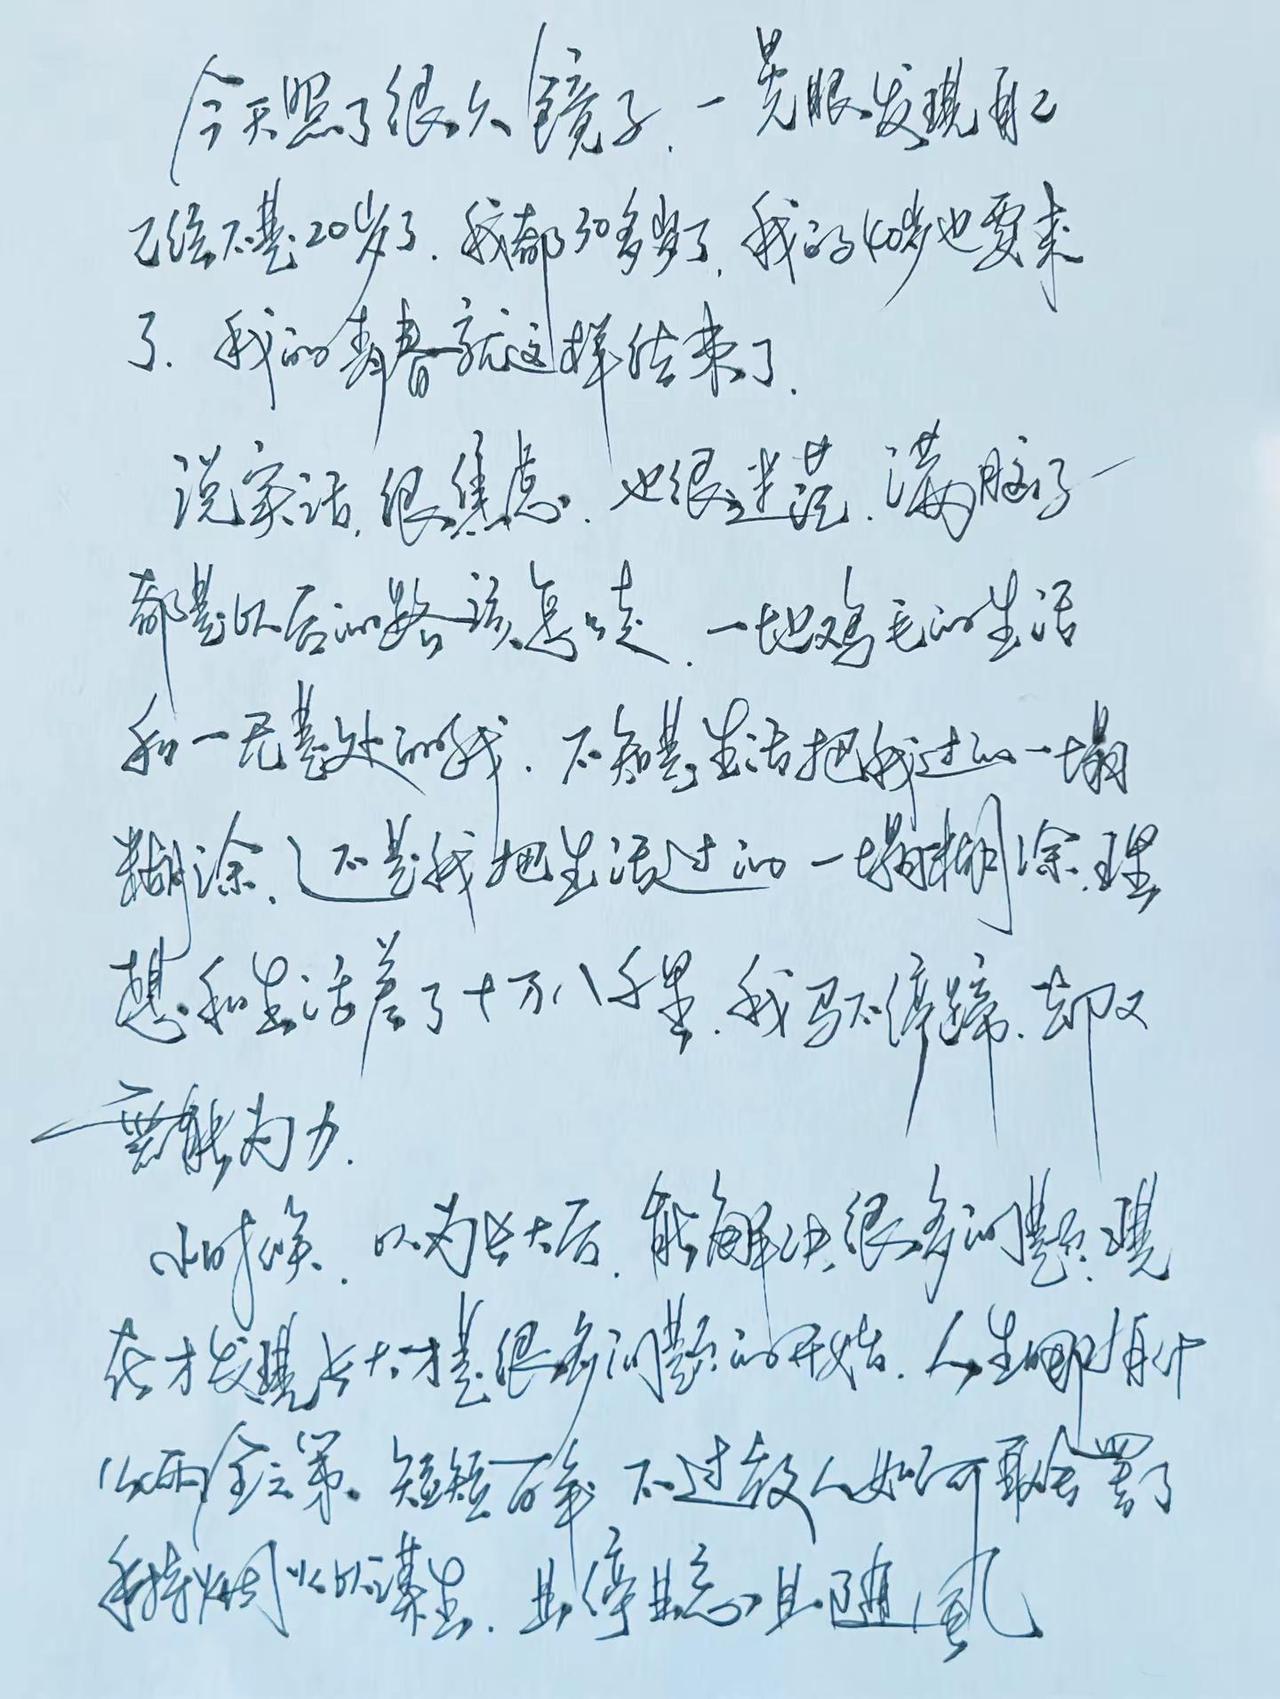 今天照了很久镜子.一晃眼发现自己
已经不是20岁了.我都30多岁了,我的40岁也要来
了.我的青春就这样结束了.
说实话,很焦虑.也很迷茫.满脑子
都是以后的路该怎么走.一地鸡毛的生活
和一无是处的我.不知是生活把我过的一塌
糊涂,还是我把生活过的一塌糊涂.理
想和生活差了十万八千里.我马不停蹄.却又
无能为力.
小时候.以为长大后.能解决很多问题.现
在才发现长大才是很多问题的开始.人生哪有什
么两全之策.短短百年不过故人如何取舍罢了
我持烟火以谋生.且停且忘且随风